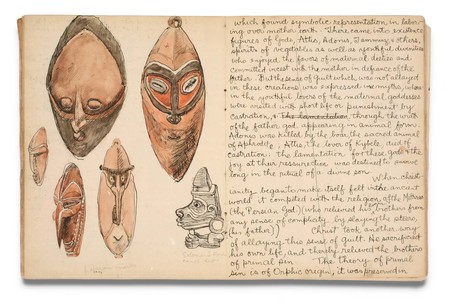 which found symbolic representation in labor-
ing over mother earth. There came into existence
figures of gods, Attis, Adonis, Tammuz, & others,
spirits of vegetables as well as youthful divinities
who enjoyed the favors of maternal deities and
committed incest with the mother in defiance of the
father. But the sense of guilt which was not allayed
in these creations was expressed in myths, where
in the youthful lovers of the maternal goddesses
were visited with short life or punishment by
castration, & the lamentation through the wrath
of the father god appearing in animal form.
Adonis was killed by the boar the sacred animal
of Aphrodite. Attis, the lover of Kybele, died of
castration. The lamentation, for these gods & the
joy at their resurrection was destined to survive
long in the ritual of a divine son.
When christ-
ianity began to make itself felt in the ancient
world it competed with the religion of the Mithras
(the Persian God) (who relieved his brothers from
any sense of complicity, by slaying the steer,
his father)) Christ took another way
of allaying this sense of guilt. He sacrificed
his own life, and thereby relieved the brothers
of primal sin The theory of primal
sin is of Orphic origin, it was preserved in